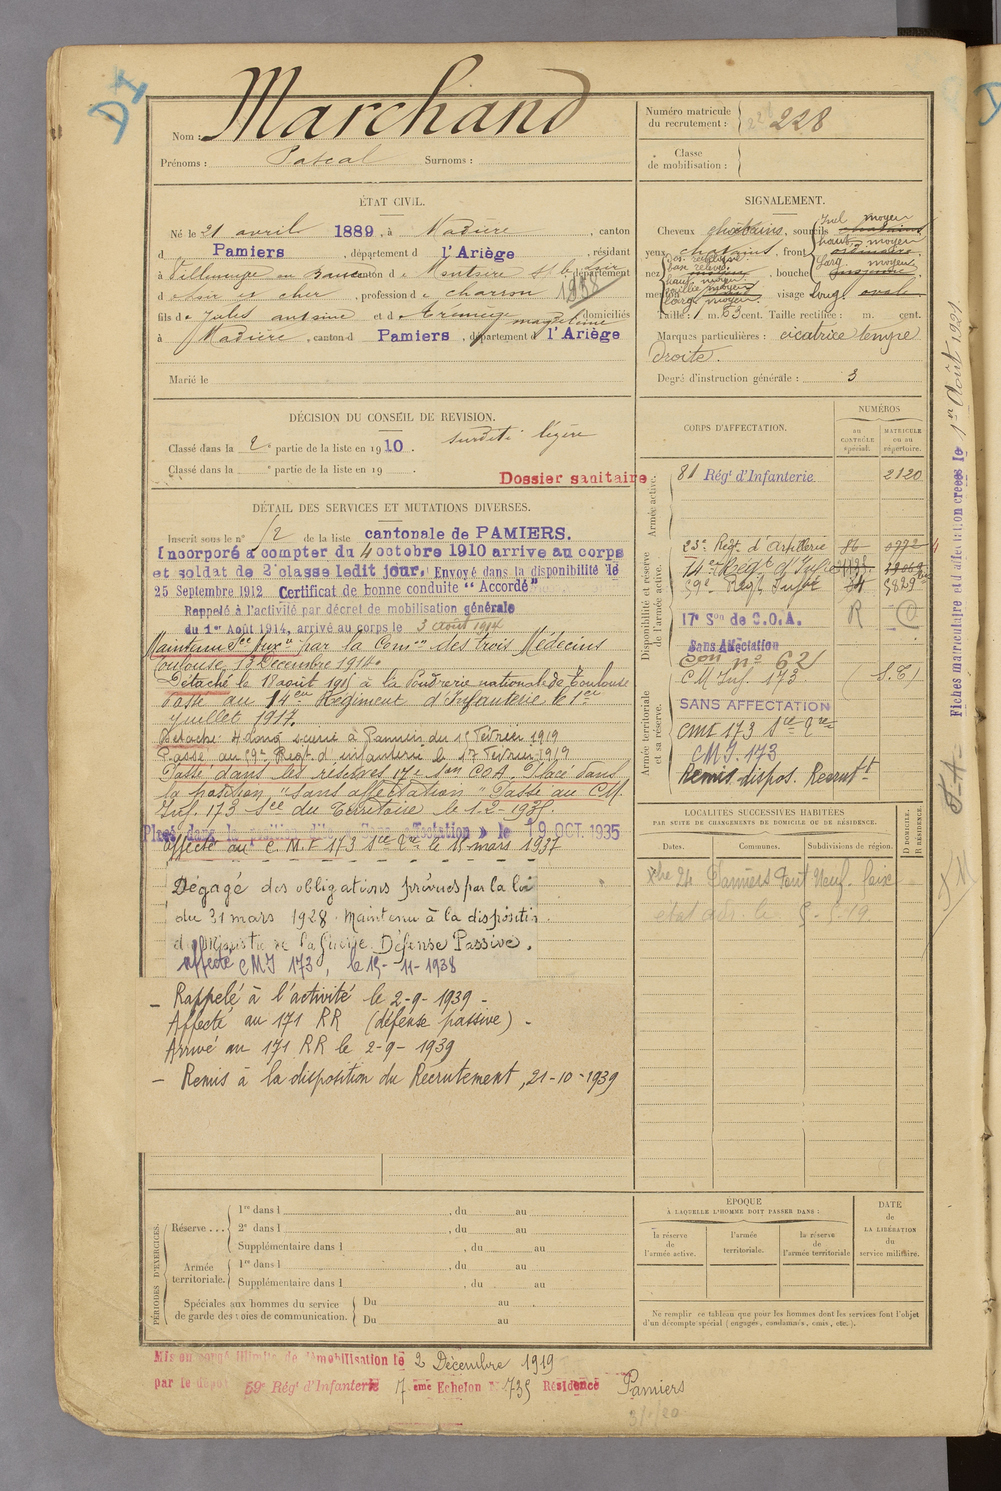 Nom : Marchand
Prénoms : Pascal Surnoms :
Numéro matricule du recrutement : 228
Classe de mobilisation :
ÉTAT CIVIL.
Né le 21 avril 1889, à Madière, canton
d Pamiers, département d l'Ariège, résidant
à Villeneuve en canton de Montoire département
d Loir et Cher, profession de charron 1938
fils de Jules antoine et d magdeleine domiciliés
à Madière, canton d Pamiers, département d l'Ariège
Marié le
SIGNALEMENT.
Cheveux châtains, sourcils châtains
yeux châtains, front
nez bouche
menton visage long ovale
Taille : 1 m. 63 cent. Taille rectifiée : m. cent.
Marques particulières : cicatrice tempe
droite.
Degré d'instruction générale : 3
DÉCISION DU CONSEIL DE REVISION.
Classé dans la 2e partie de la liste en 1910. surdité légère
Classé dans la e partie de la liste en 19 .
Dossier sanitaire
DÉTAIL DES SERVICES ET MUTATIONS DIVERSES.
Inscrit sous le n° 12 de la liste cantonale de PAMIERS.
Incorporé à compter du 4 octobre 1910 arrive au corps
et soldat de 2e classe ledit jour. Envoyé dans la disponibilité le
25 Septembre 1912 Certificat de bonne conduite "Accordé"
Rappelé à l'activité par décret de mobilisation générale
du 1er Août 1914, arrivé au corps le 3 août 1914
Maintenu Sce Auxre par la Comon des trois Médecins
Toulouse 13 Décembre 1914.
Détaché le 18 août 1915 à la Poudrerie nationale de Toulouse
Passé au 14eme Régiment d'Infanterie le 1er
Juillet 1917.
Détaché à Pamiers du 15 Février 1919
Passé au 59e Regt d'infanterie le 17 Février 1919
Passé dans les réserves 17e Son COA. Placé dans
la position "Sans affectation" Passé au CM.
Inf. 173 Sce du Territoire le 1-2-1935.
Placé dans la position affectation » le 19 OCT. 1935
Affecté au C.M.I 173 Sce le 15 mars 1937
Dégagé des obligations prévues par la loi
du 31 mars 1928. Maintenu à la disposition
du Ministre de la Guerre. Défense Passive.
affecté CMI 173, le 15-11-1938
- Rappelé à l'activité le 2-9-1939 -
Affecté au 171 RR (défense passive) -
Arrivé au 171 RR le 2-9-1939
- Remis à la disposition du Recrutement, 21-10-1939
CORPS D'AFFECTATION.
NUMÉROS
au CONTRÔLE spécial.
MATRICULE ou au répertoire.
Armée active.
81 Régt d'Infanterie. 2120
Disponibilité et réserve de l'armée active.
23e Régt d'Artillerie 86
14e Régt d'Infie
59e Regt Infie
17e Son de C.O.A. R
Sans Affectation
Armée territoriale et sa réserve.
CM Inf. 173
SANS AFFECTATION
CMI 173 Sce
CMI. 173
Remis dispos. Recrutt
LOCALITÉS SUCCESSIVES HABITÉES
PAR SUITE DE CHANGEMENTS DE DOMICILE OU DE RÉSIDENCE.
Dates. Communes. Subdivisions de région. D DOMICILE. R RÉSIDENCE.
Xbre 24 Pamiers Pont Neuf. Foix
Fiches matriculaire et d'affectation créées le 1er Août 1921
PÉRIODES D'EXERCICES.
Réserve ...
1re dans l , du au
2e dans l , du au
Supplémentaire dans l , du au
Armée territoriale.
1re dans l , du au
Supplémentaire dans l , du au
Spéciales aux hommes du service de garde des voies de communication.
Du au
Du au
EPOQUE
À LAQUELLE L'HOMME DOIT PASSER DANS :
la réserve de l'armée active.
l'armée territoriale.
la réserve de l'armée territoriale
DATE de LA LIBÉRATION du service militaire.
Ne remplir ce tableau que pour les hommes dont les services font l'objet
d'un décompte spécial (engagés, condamnés, omis, etc.).
Mis en congé illimité de démobilisation le 2 Décembre 1919
par le dépôt 59e Régt d'Infanterie 7eme Echelon N° 735 Résidence Pamiers